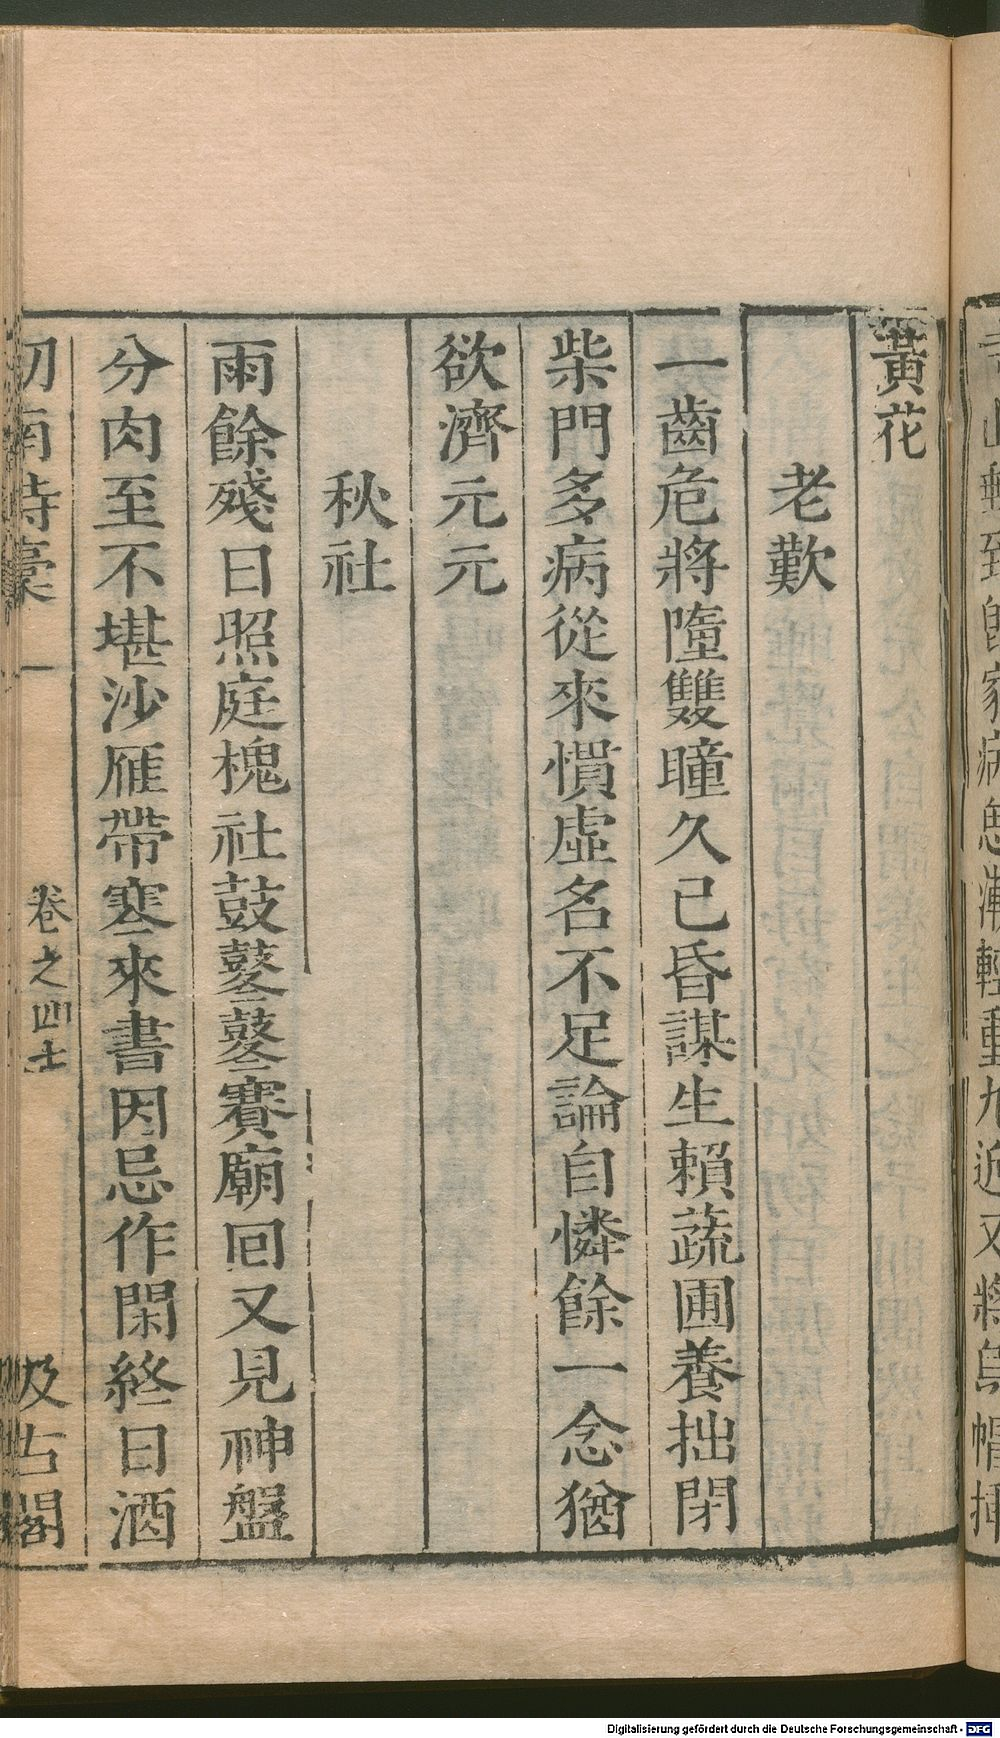 黃花
老歎
一齒危將墮雙瞳久已昏謀生賴蔬圃養拙閉
柴門多病從來慣虛名不足論自憐餘一念猶
欲濟元元
秋社
雨餘殘日照庭槐社鼓鼕鼕賽廟回又見神盤
分肉至不堪沙雁帶寒來書因忌作閑終日酒
卷之四 及古閣
Digitalisierung gefördert durch die Deutsche Forschungsgemeinschaft - DFG